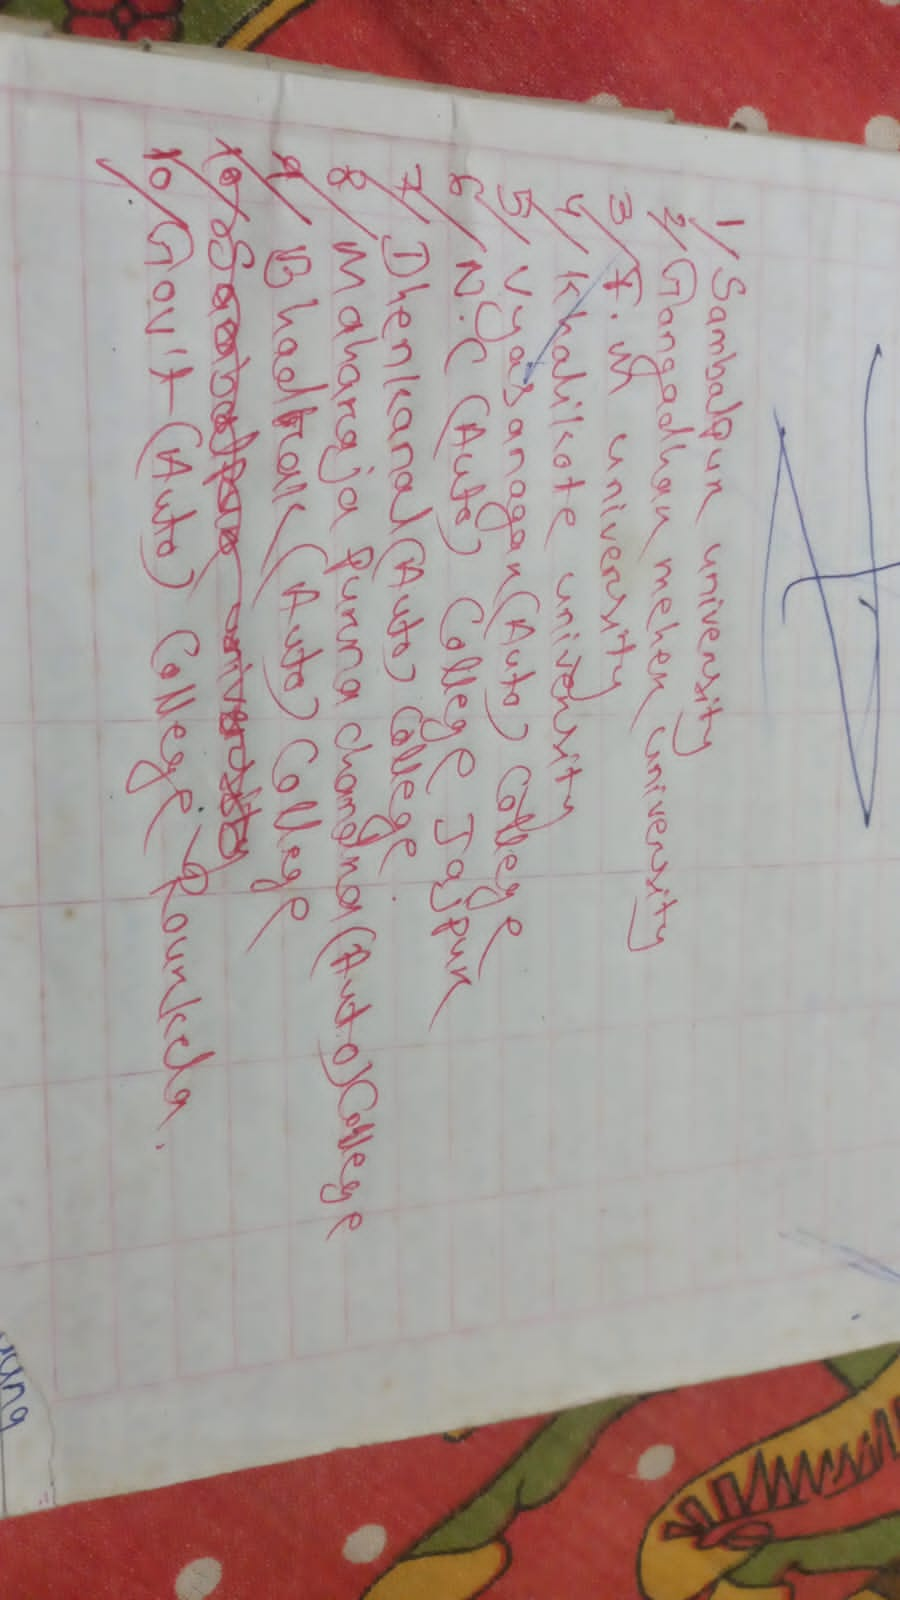 1/ Sambalpur university
2/ Gangadhar meher university
3/ F.M university
4/ Khallikote university
5/ Vyasanagar (Auto) College
6/ N.C (Auto) College Jajpur
7/ Dhenkanal (Auto) College.
8/ Maharaja purna chandra (Auto) College
9/ Bhadrak (Auto) College
10/ Sambalpur university
10/ Gov't (Auto) College, Rourkela.